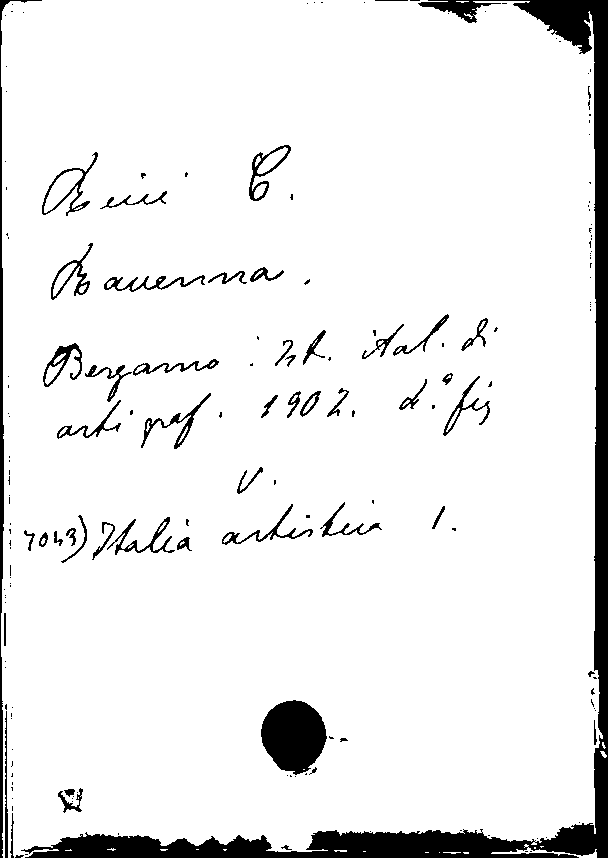 Ricci C.
Ravenna.
Bergamo: Ist. ital. di
arti graf. 1902. 4.º fig
V.
7043) Italia artistica 1.